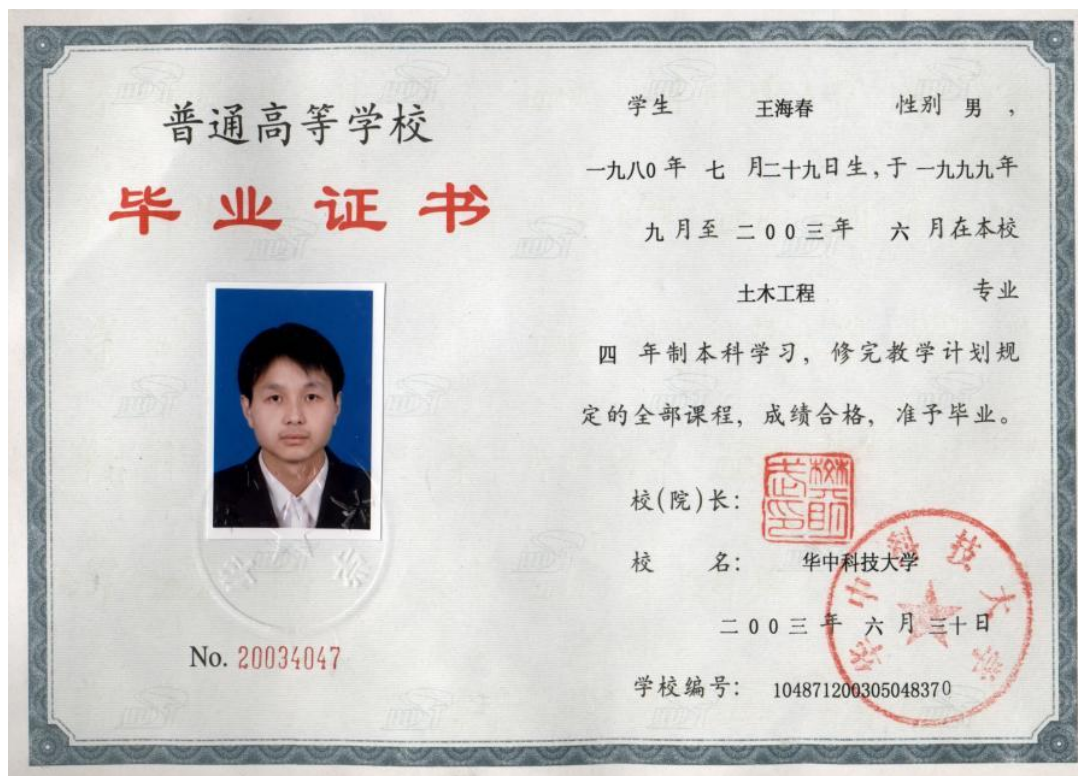 普通高等学校
毕业证书
No. 20034047
学生 王海春 性别 男，
一九八0年 七 月二十九日生，于 一九九九年
九 月至 二00三年 六 月在本校
土木工程 专业
四 年制本科学习，修完教学计划规
定的全部课程，成绩合格，准予毕业。
校(院)长：
樊明武印
校 名： 华中科技大学
华中科技大学
二00三 年 六 月 三十日
学校编号： 104871200305048370